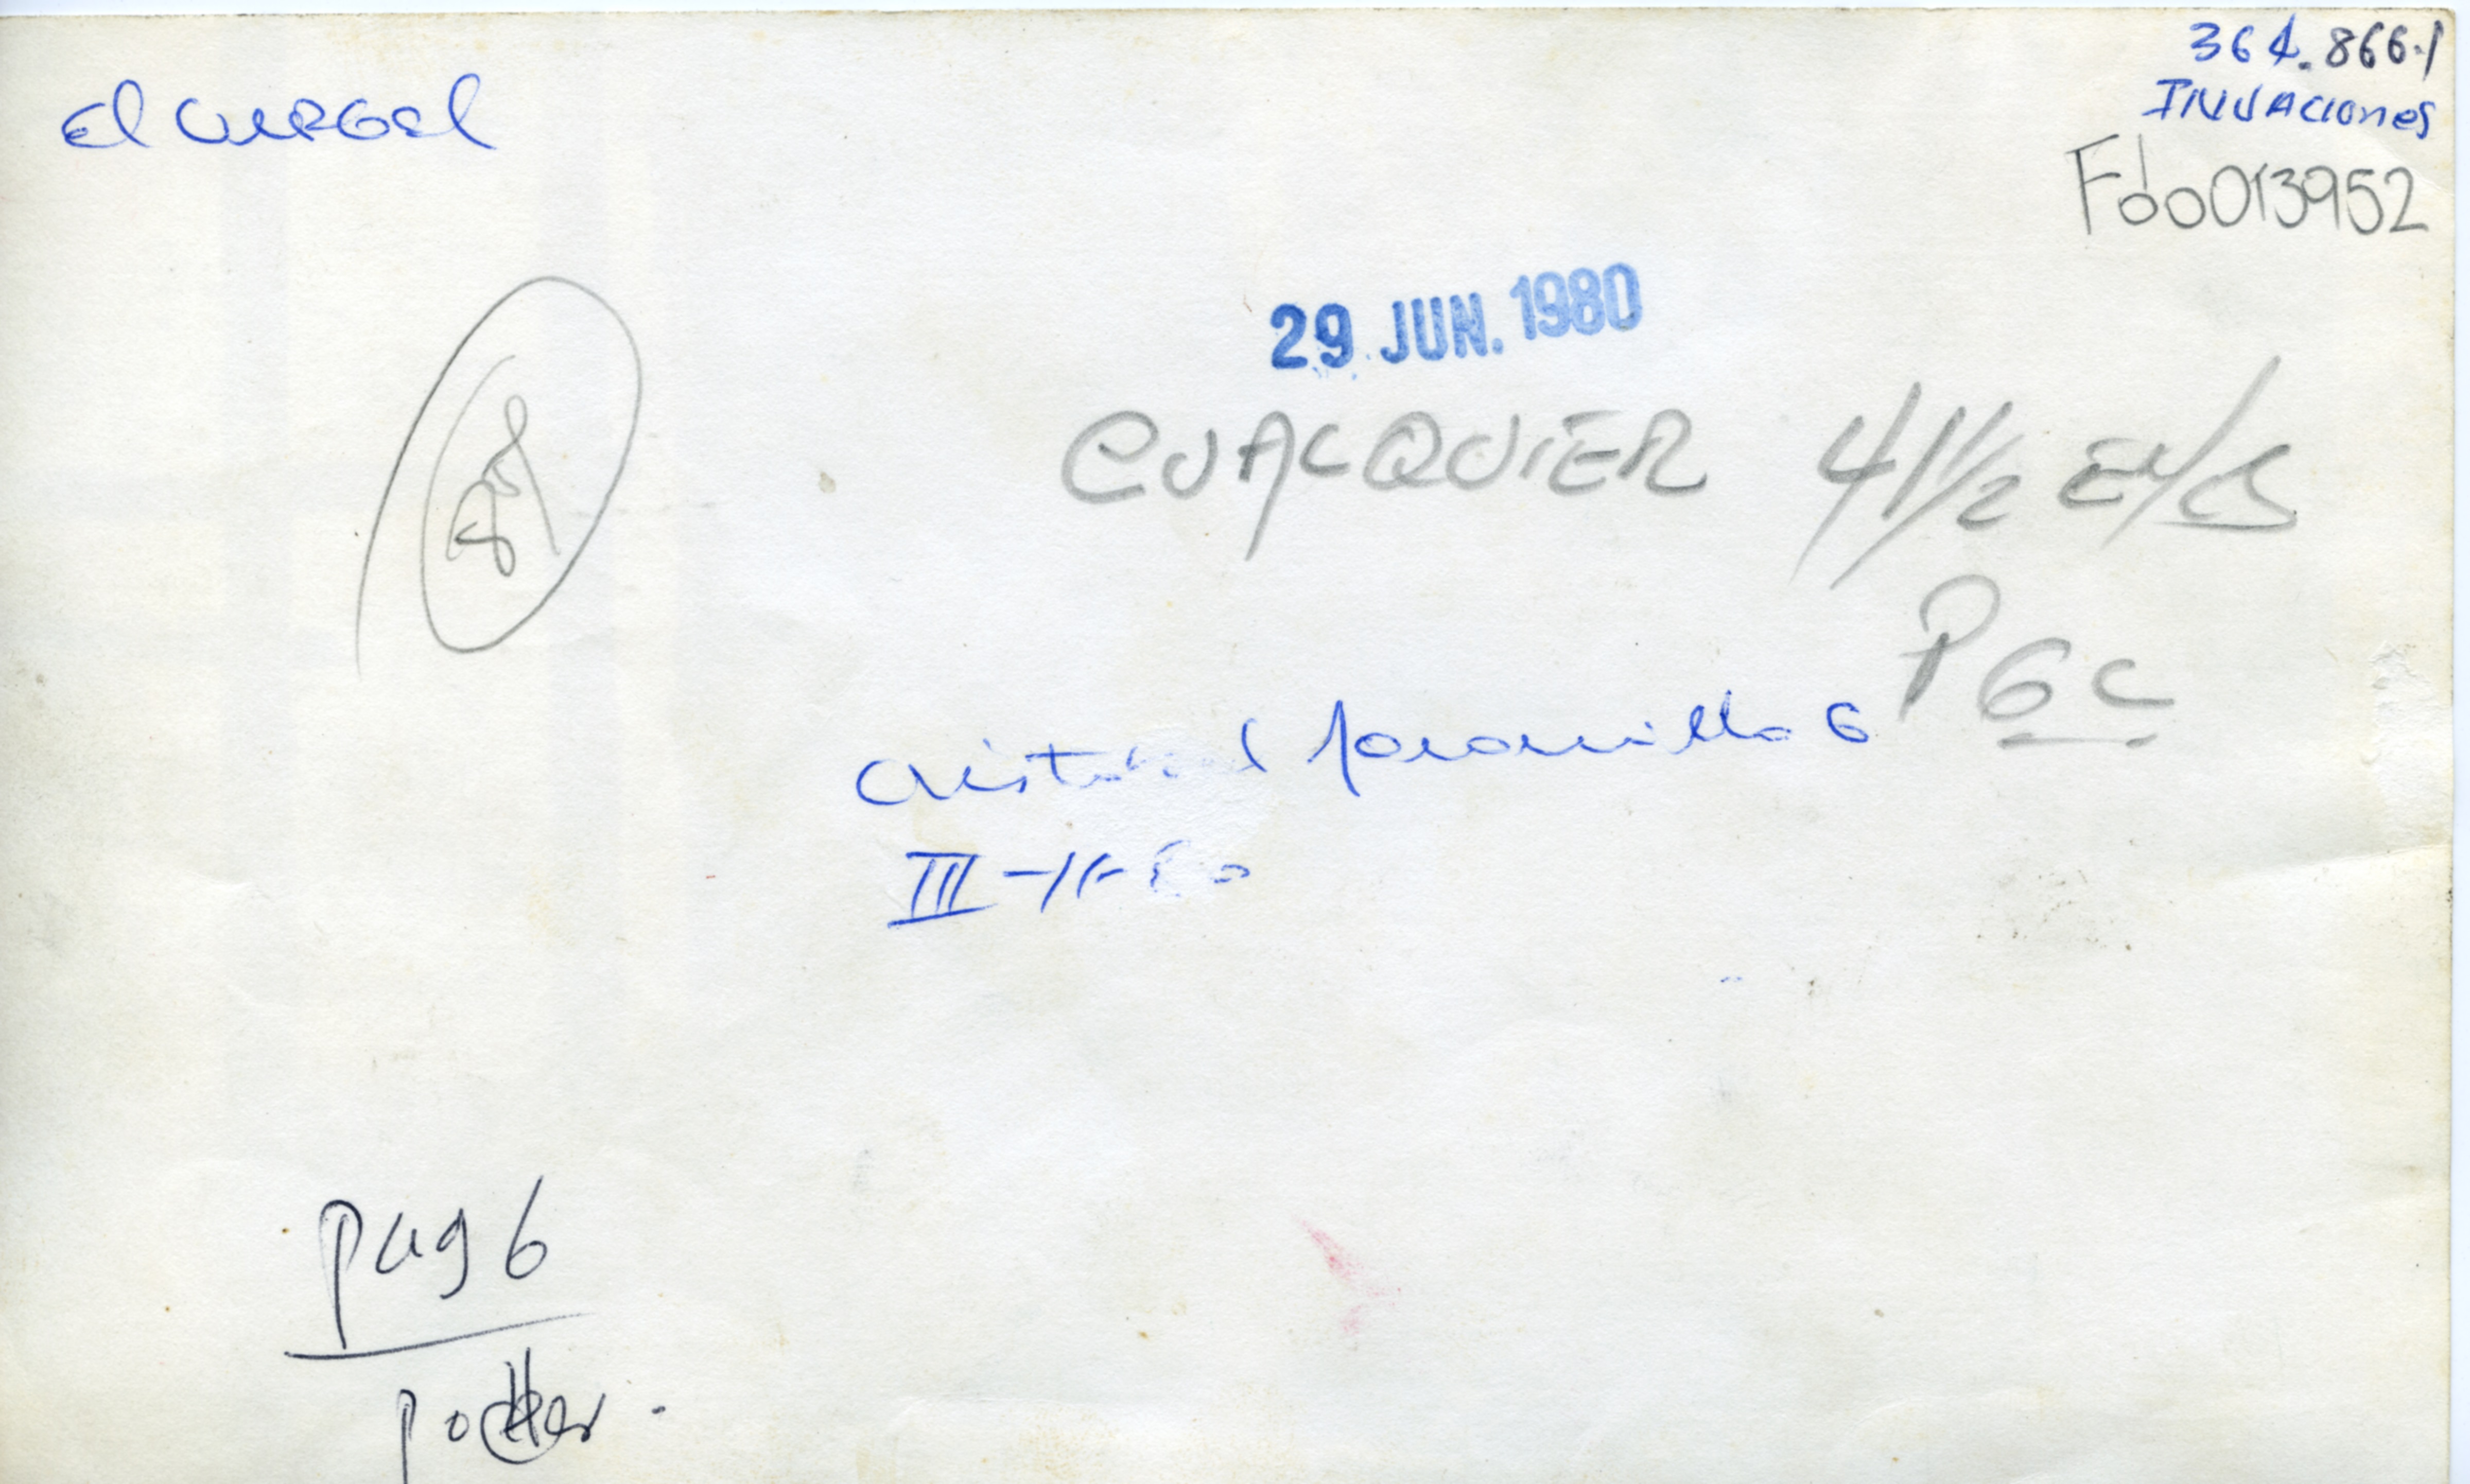 El Vergel
364.866.1
INVACIONES
Fdo013952
29 JUN. 1980
CUALQUIER 4 1/2
P 6C
Cristobal Jaramillo G
III-11-80
pag 6